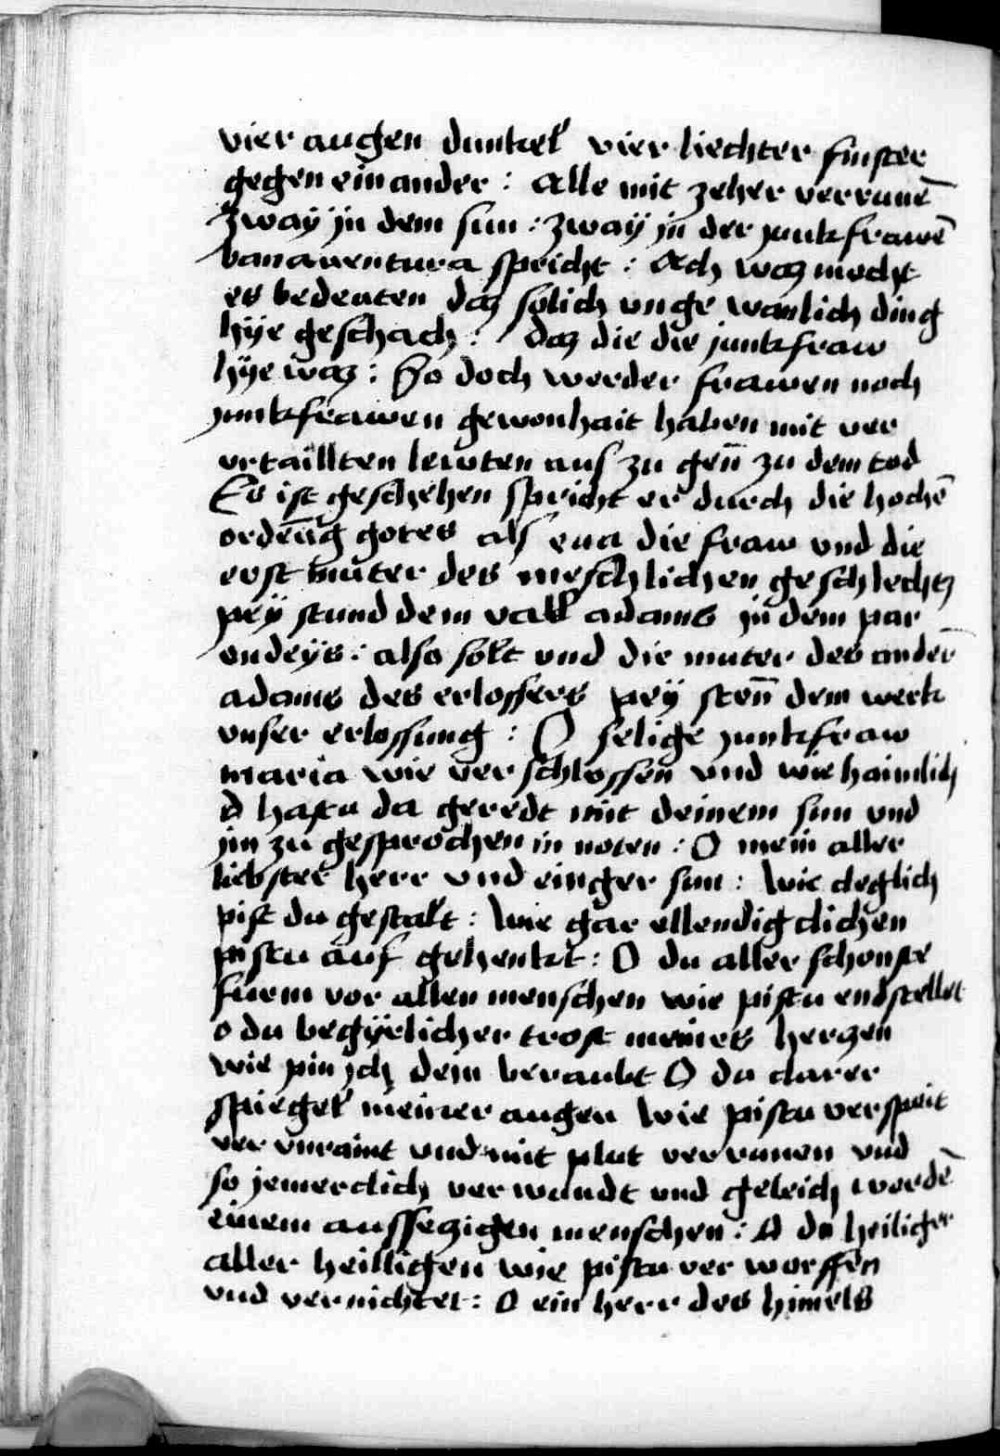 vier augen dunkel vier liechter finster
gegen ein ander : Alle mit zeher verrunē
zway jn dem sun : zway jn der junkfrawē
banaventura spricht : Ach waz mocht
es bedeuten daz sölich unge wanlich ding
hye geschach : daz die die junkfraw
hye waz : So doch weder frawen noch
junkfrawen gewonhait haben mit ver
urtaillten lewten aus zu gen̄ zu dem tod
Es ist geschehen spricht er durch die hochē
ordeūg gotes als eua die fraw vnd die
erst muter des meschlichen geschlechtz
pey stund dem vall adams jn dem par
endeys : also solt vnd die muter des anderͫ
adams des erlossers pey sten̄ dem werk
vnser erlossung : O selige junkfraw
maria wie ver schlossen vnd wie haimlich
d hastu da geredt mit deinem sun vnd
jm zu gesprochen in noten : O mein aller
liebster herr vnd einger sun : wie cleglich
pist du gestalt : wie gar ellendig clichen
pistu auf gehenkt : O du aller schonste
furm vor allen menschen wie pistu endstellet
o du begyrlicher trost meines herzen
wie pin jch dein beraubt O du clarer
spiegel meiner augen wie pistu verspeit
ver vnraint vnd mit plut verrunen vnd
so jemerclich verwundt vnd geleich wordē
einem aussezigen menschen : O du heiliger
aller heilligen wie pistu ver worffen
vnd vernichtet : O ein herr des himels